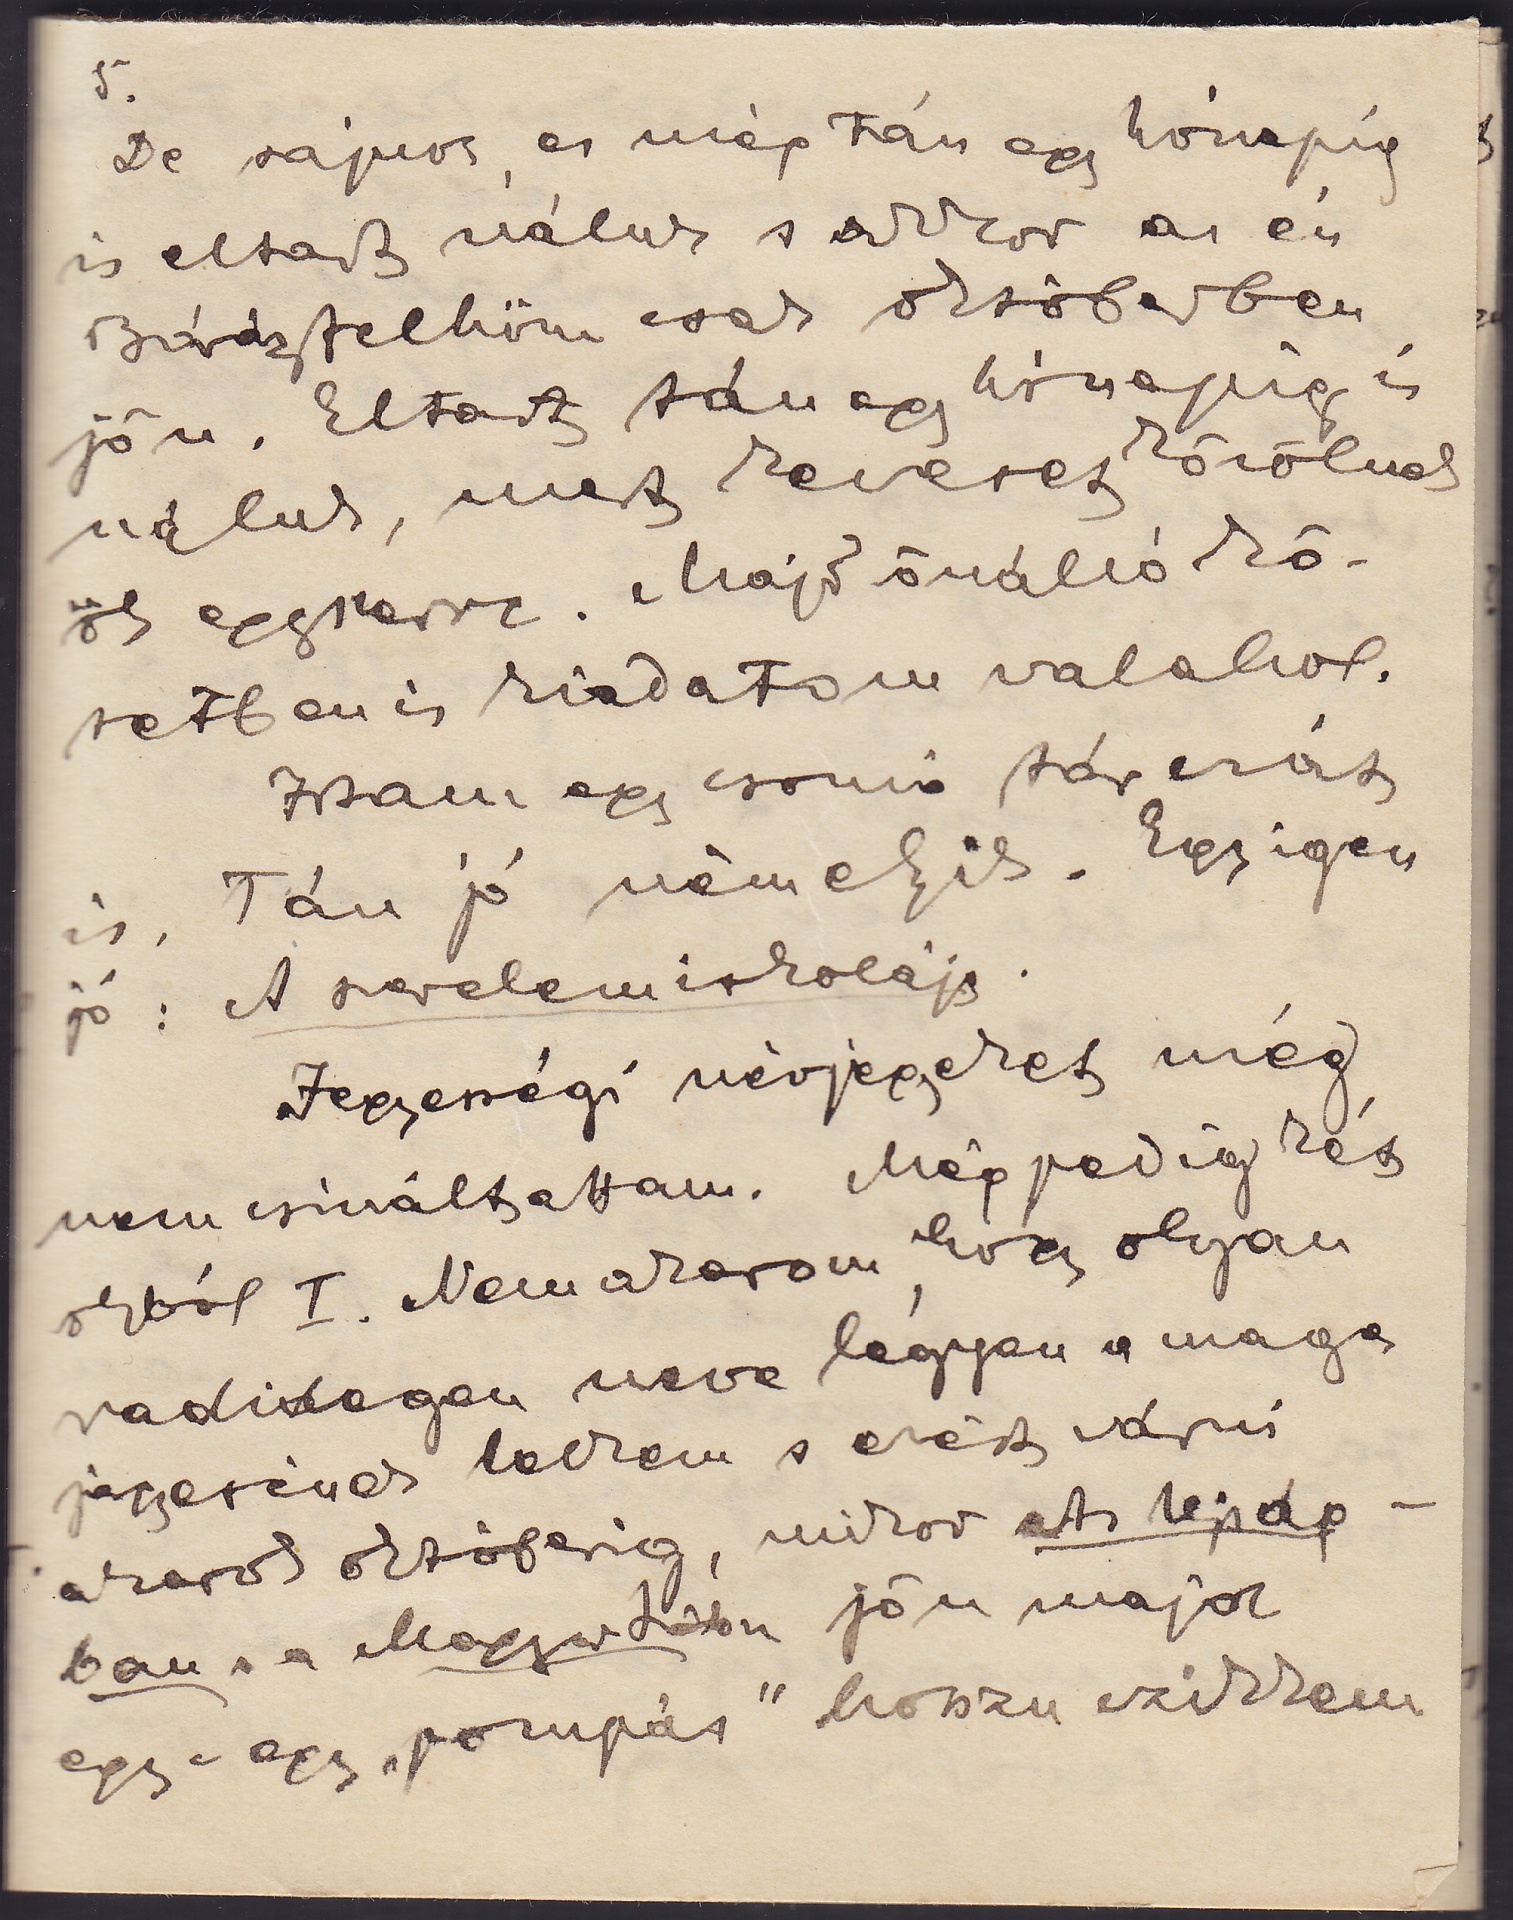 5.
De sajnos, ez még tán egy hónapig
is eltart náluk s akkor az én
Bíráztelhöm csak októberben
jön. Eltart tán egy hónapig is
náluk, mert keveset közölnek
öt egyszerre. Majd önálló kö-
tetben is kiadatom valahol.
Irtam egy csomó tárczát
is, Tán jó némelyik. Egy igen
jó: A szerelem iskolája.
Jegyességi névjegyeket még
nem csináltattam. Még pedig két
okból I. Nem akarom, hogy olyan
vadidegen neve légyen a maga
jegyesének lelkem s ezért várni
akarok októberig, mikor Az Ujság-
ban s a Magyarhon jön majd
egy-egy „pompás" hosszu czikkem